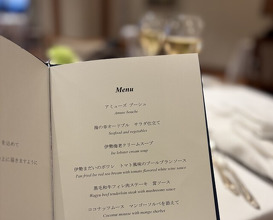 Menu
アミューズ ブーシュ
Amuse bouche
海の幸オードブル サラダ仕立て
Seafood and vegetables
伊勢海老クリームスープ
Ise lobster cream soup
伊勢まだいのポワレ トマト風味のブールブランソース
Pan-fried Ise red sea bream with tomato flavored white wine sauce
黒毛和牛フィレ肉ステーキ 茸ソース
Wagyu beef tenderloin steak with mushrooms sauce
ココナッツムース マンゴーソルベを添えて
Coconut mousse with mango sherbet